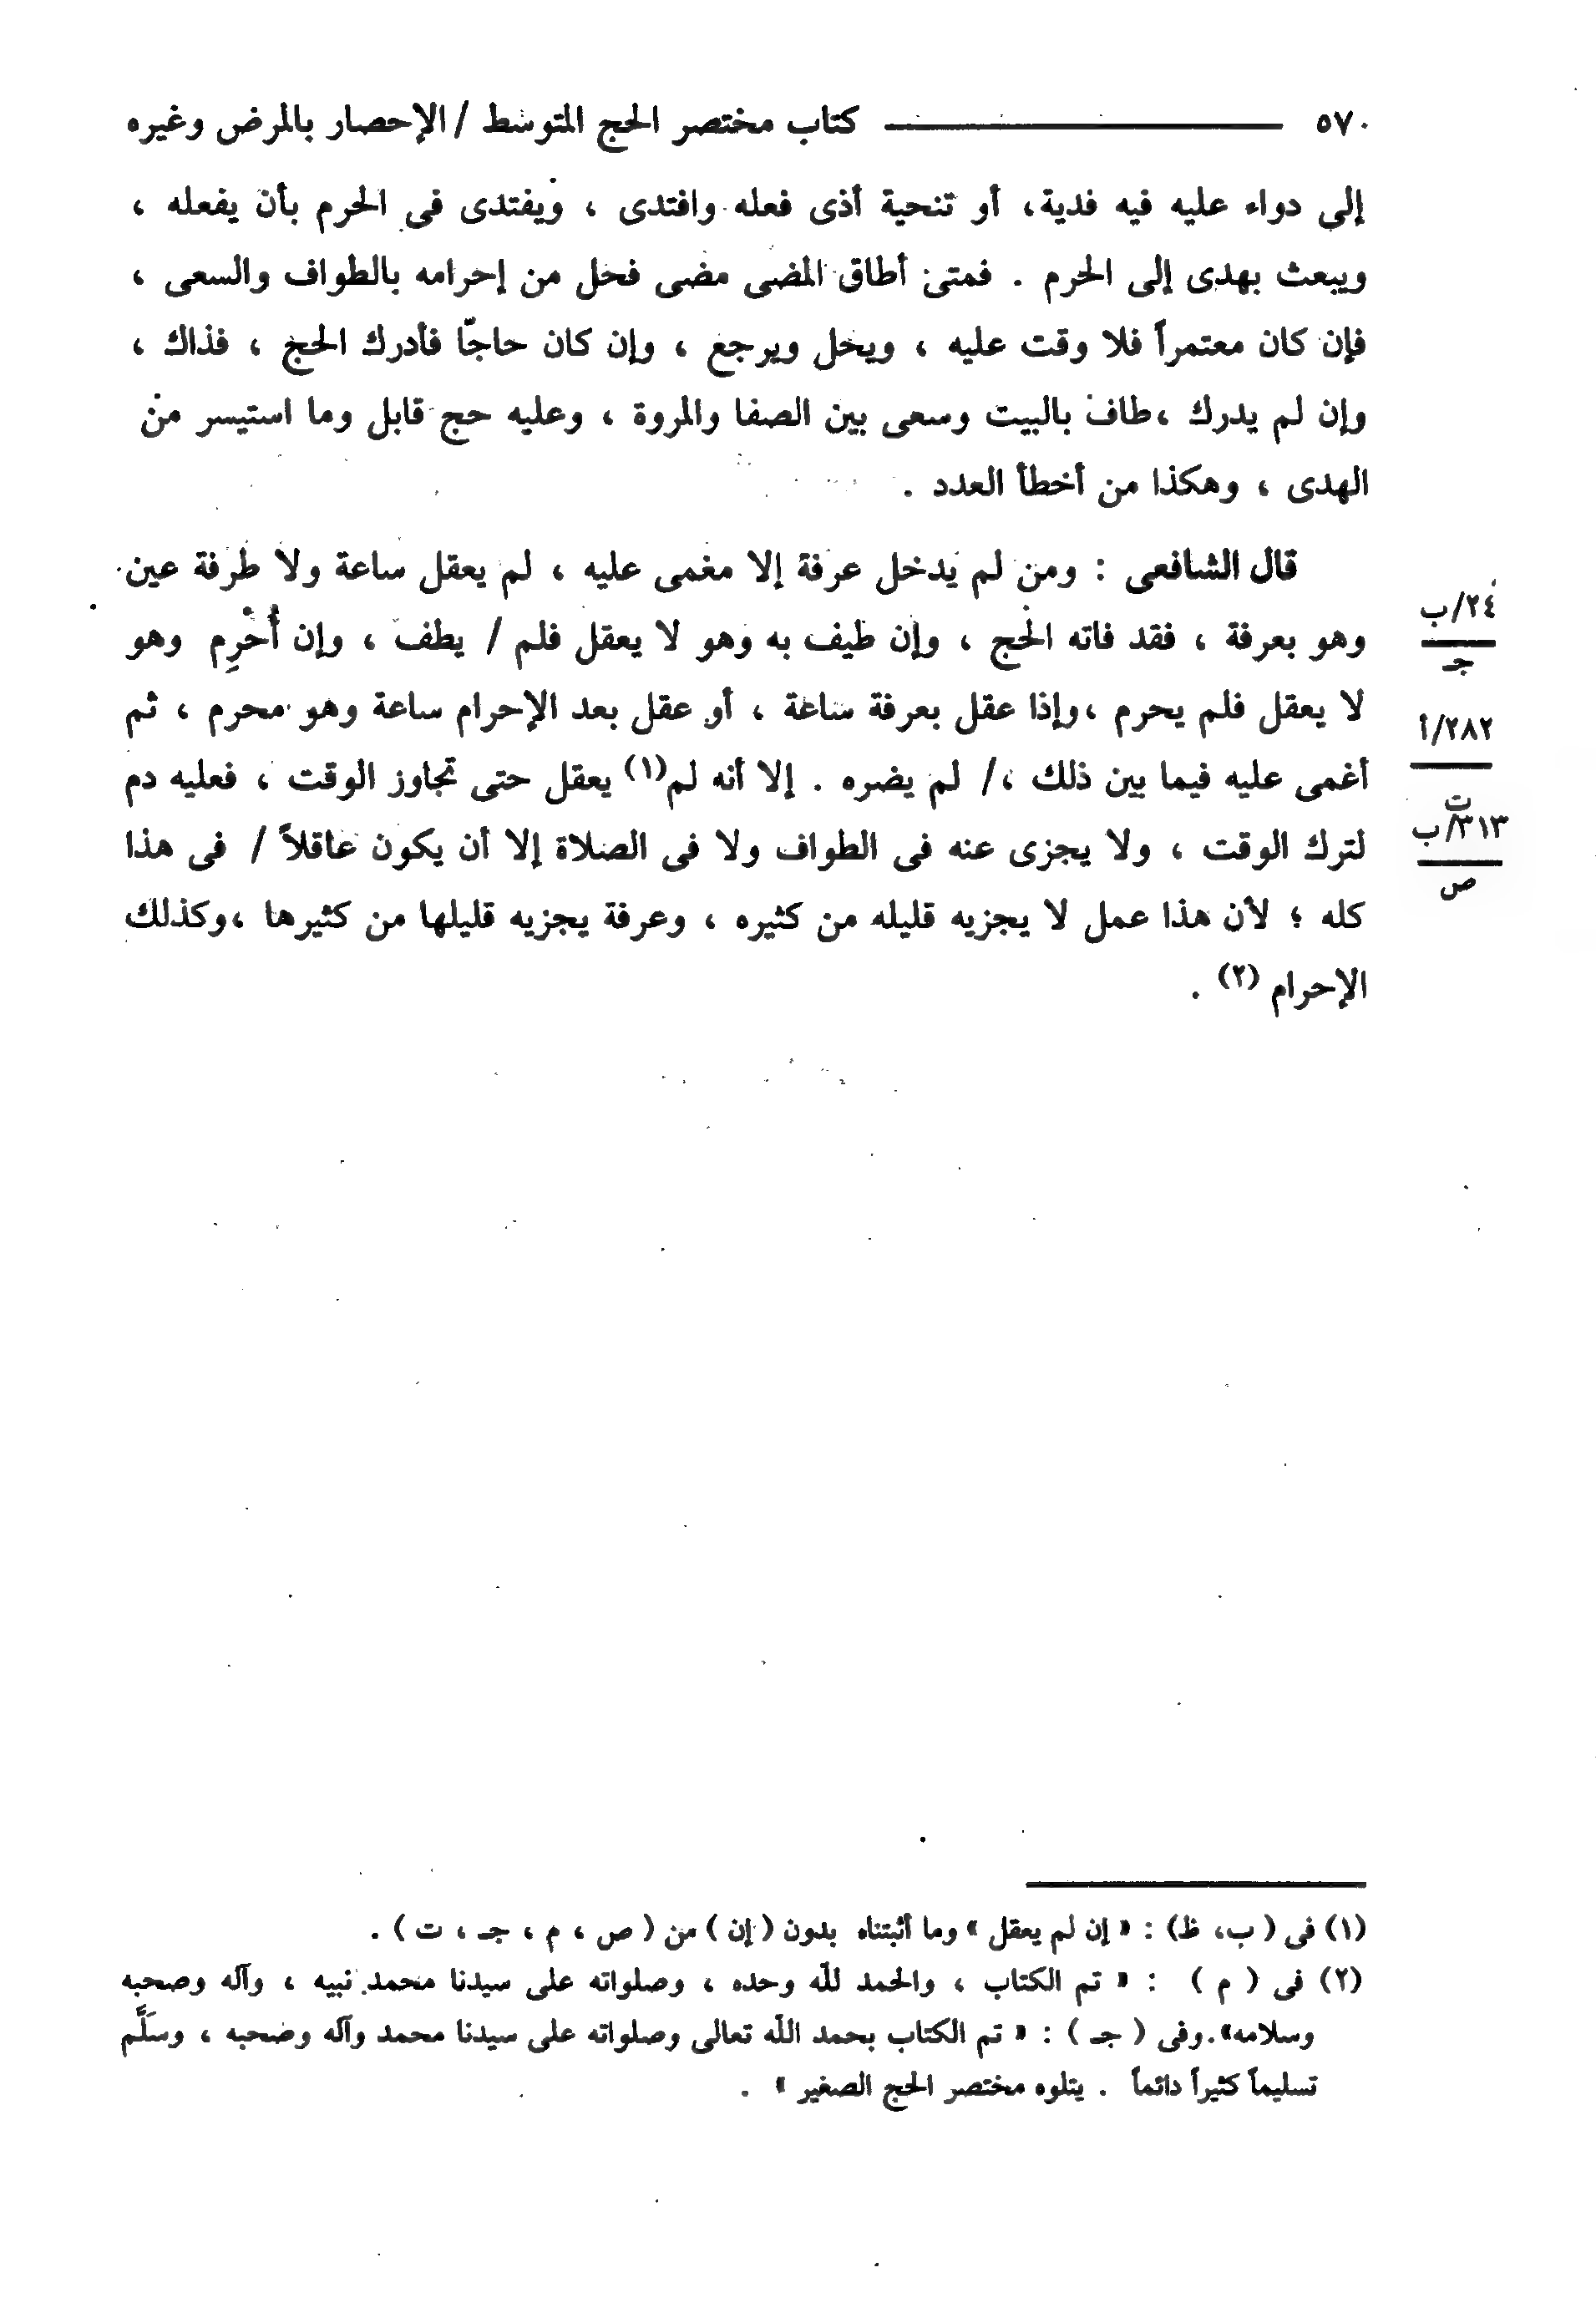 ٥٧٠ كتاب مختصر الحج المتوسط / الإحصار بالمرض وغيره
إلى دواء عليه فيه فدية، أو تنحية أذى فعله وافتدى ، ويفتدى فى الحرم بأن يفعله ،
ويبعث بهدى إلى الحرم . فمتى أطاق المضى مضى فحل من إحرامه بالطواف والسعى ،
فإن كان معتمراً فلا وقت عليه ، ويحل ويرجع ، وإن كان حاجّا فأدرك الحج ، فذاك ،
وإن لم يدرك ،طاف بالبيت وسعى بين الصفا والمروة ، وعليه حج قابل وما استيسر من
الهدى ، وهكذا من أخطأ العدد .
قال الشافعى : ومن لم يدخل عرفة إلا مغمى عليه ، لم يعقل ساعة ولا طرفة عين
وهو بعرفة ، فقد فاته الحج ، وإن طيف به وهو لا يعقل فلم / يطف ، وإن أُحْرِم وهو
لا يعقل فلم يحرم ،وإذا عقل بعرفة ساعة ، أو عقل بعد الإحرام ساعة وهو محرم ، ثم
أغمى عليه فيما بين ذلك ،/ لم يضره . إلا أنه لم(١) يعقل حتى تجاوز الوقت ، فعليه دم
لترك الوقت ، ولا يجزى عنه فى الطواف ولا فى الصلاة إلا أن يكون عاقلاً / فى هذا
كله ؛ لأن هذا عمل لا يجزيه قليله من كثيره ، وعرفة يجزيه قليلها من كثيرها ،وكذلك
الإحرام (٢) .
٢٤/ب
جـ
٢٨٢/أ
ت
٣١٣/ب
ص
(١) فى ( ب، ظ) : « إن لم يعقل » وما أثبتناه بدون ( إن ) من ( ص ، م ، جـ ، ت ) .
(٢) فى ( م ) : « تم الكتاب ، والحمد للّه وحده ، وصلواته على سيدنا محمد نبيه ، وآله وصحبه
وسلامه».وفى ( جـ ) : « تم الكتاب بحمد اللّه تعالى وصلواته على سيدنا محمد وآله وصحبه ، وسَلَّم
تسليماً كثيراً دائماً . يتلوه مختصر الحج الصغير » .